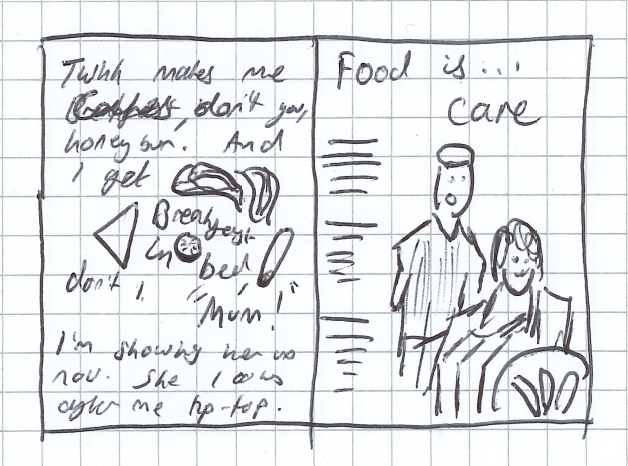 makes me
don't you,
honey bun. And
I get
Breakfast
in bed,
don't I.
"Mum!"
I'm showing her up
now. She looks
after me tip-top.
Food is...
Care